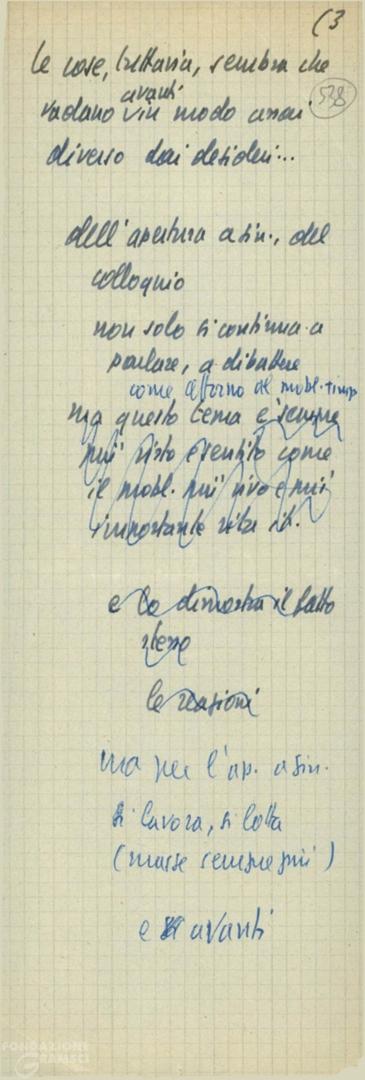 (3
538
le cose, tuttavia, sembra che
avanti
vadano in modo assai
diverso dai desideri...
dell'apertura a sin., del
colloquio
non solo si continua a
parlare, a dibattere
come attorno al probl.
ma questo tema è sempre
più visto e sentito come
il probl. più vivo e più
importante vita it.
e lo dimostra il fatto
stesso
le reazioni
ma per l'ap. a sin.
si lavora, si lotta
(masse sempre più)
e avanti
FONDAZIONE
GRAMSCI